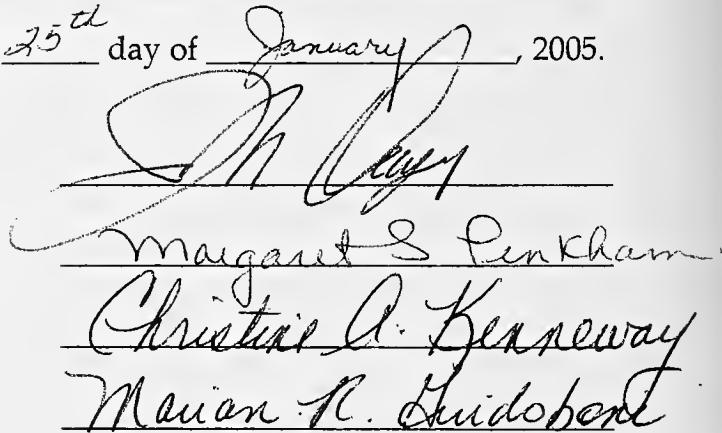 25th day of January, 2005.
Margaret S Pinkham
Christine A. Kenneway
Marian R. Guidoboni